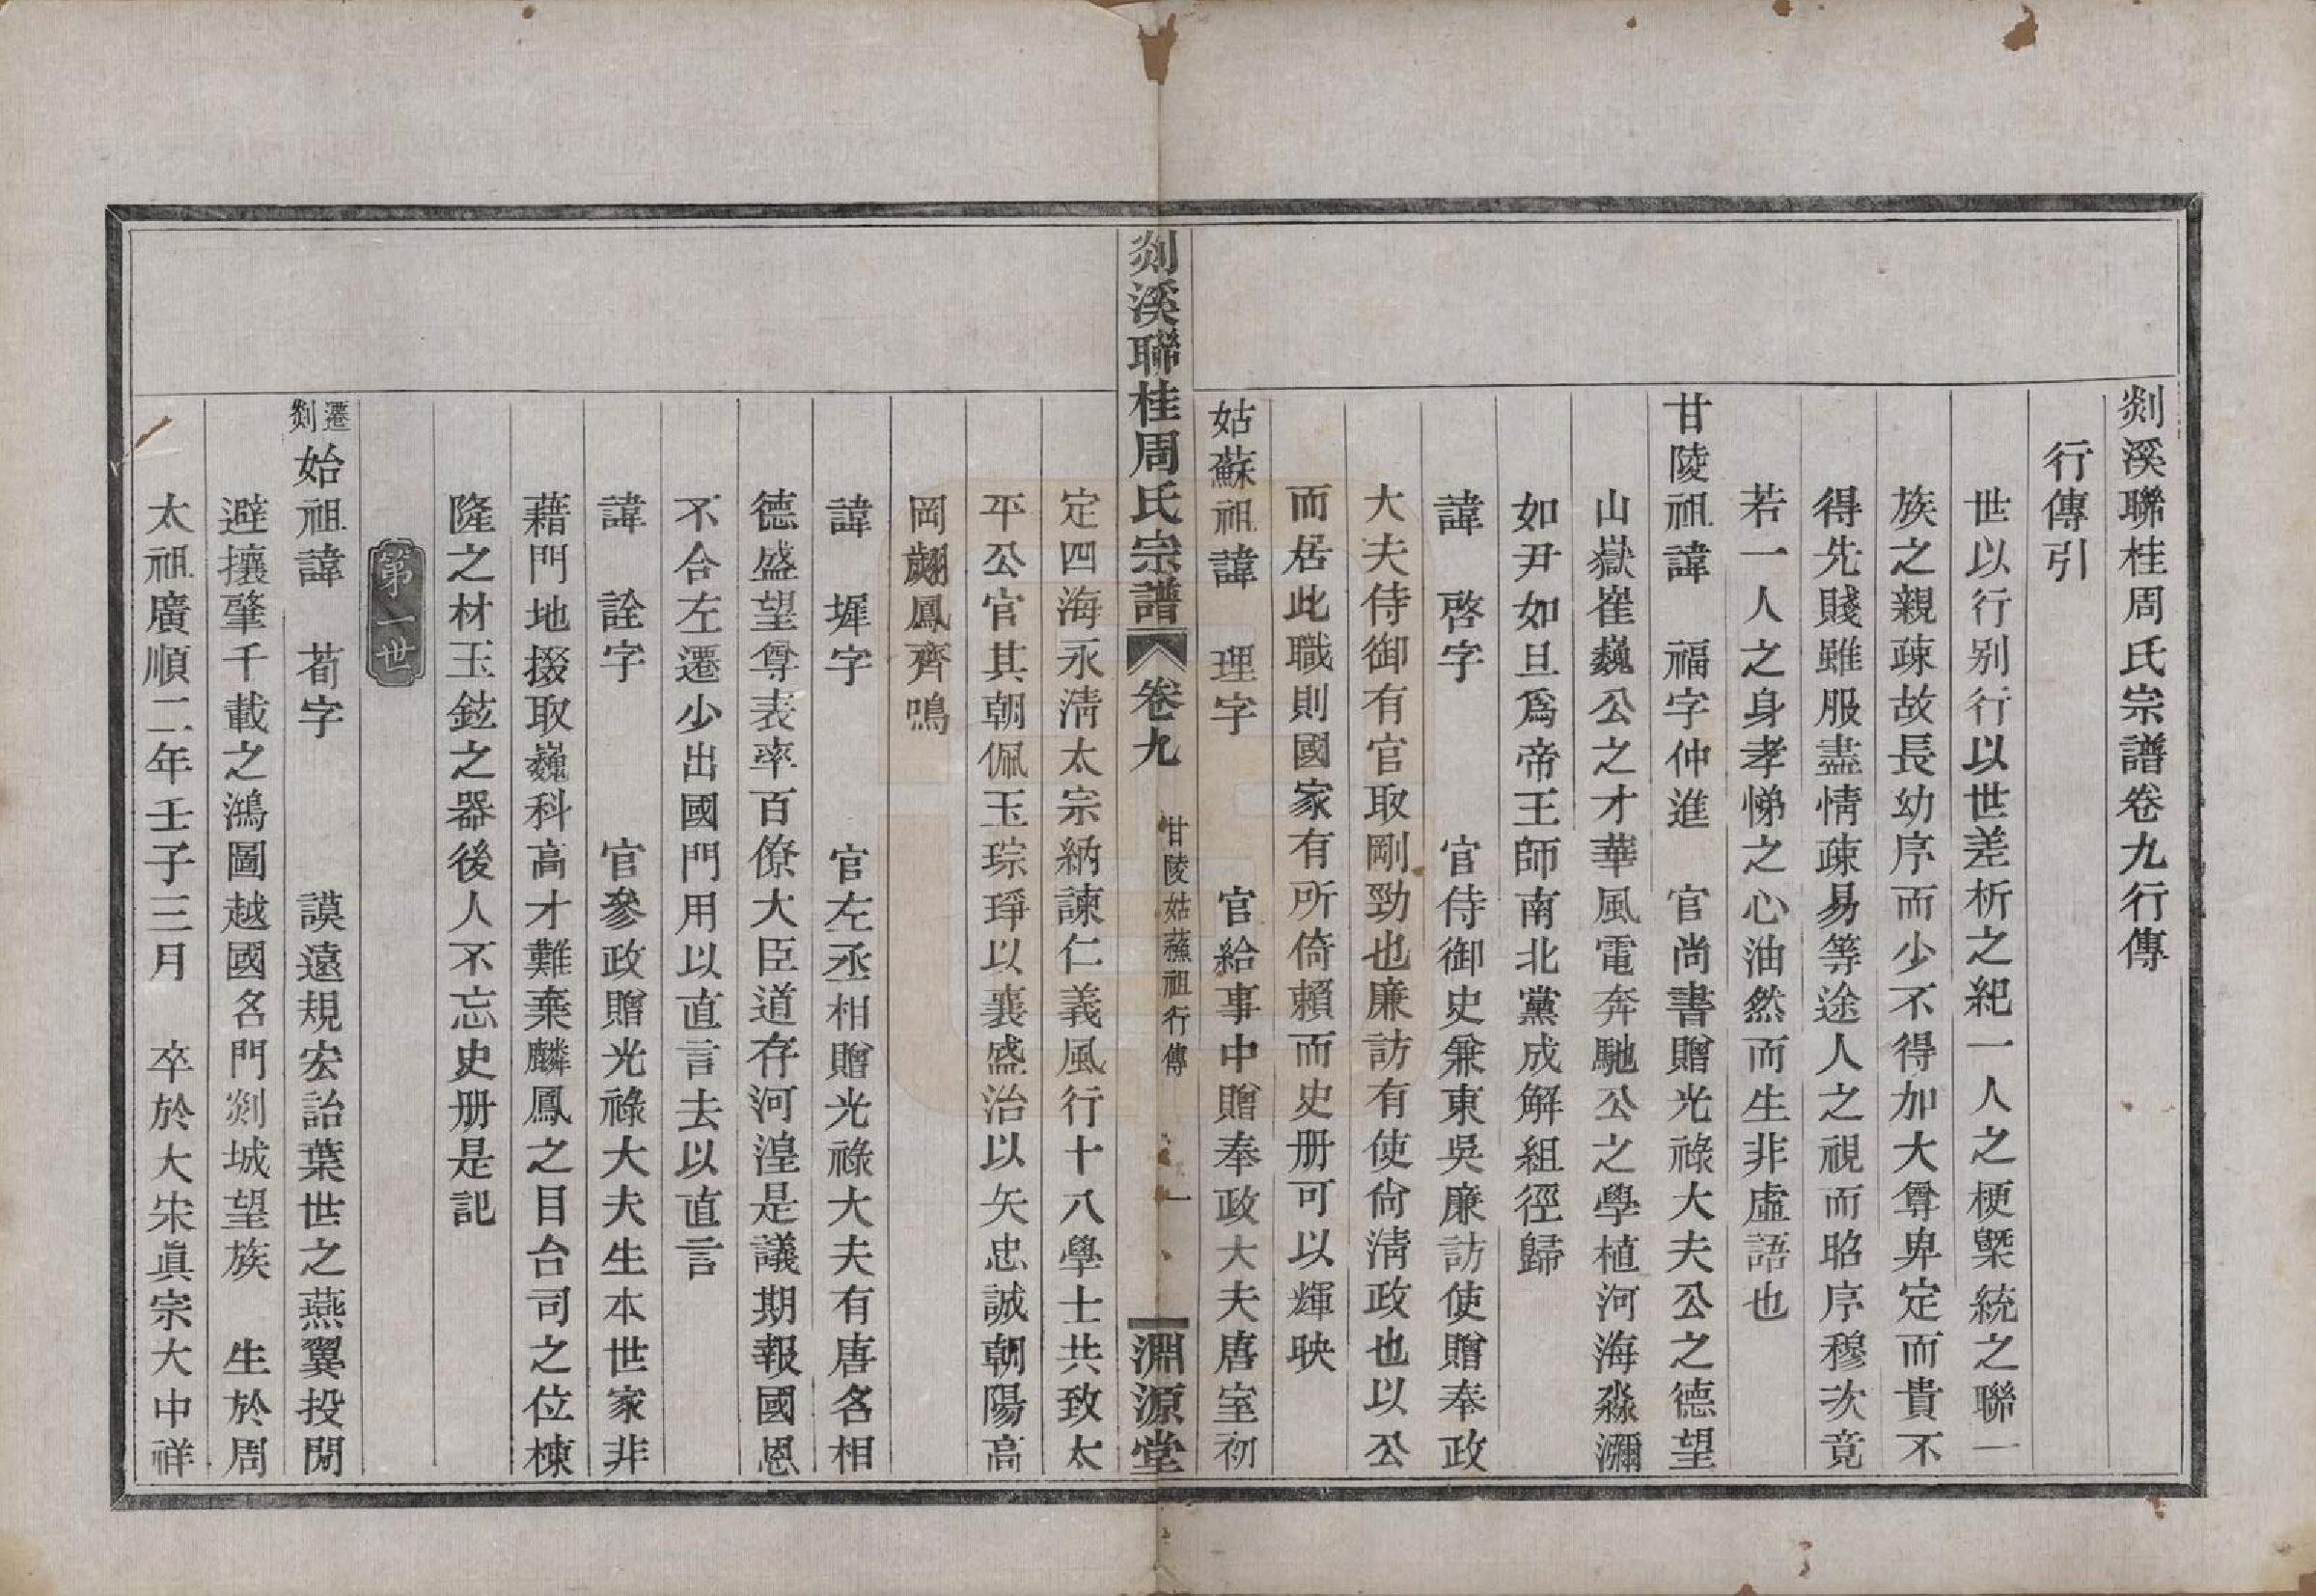 剡溪聯桂周氏宗譜卷九行傳
行傳引
世以行别行以世差析之紀一人之梗槩統之聯一
族之親疎故長幼序而少不得加大尊卑定而貴不
得先賤雖服盡情疎易等途人之視而昭序穆次竟
若一人之身孝悌之心油然而生非虛語也
甘陵祖諱　福字仲進　官尚書贈光祿大夫公之德望
山嶽崔巍公之才華風電奔馳公之學植河海淼瀰
如尹如旦爲帝王師南北黨成解組徑歸
諱　啓字　　　官侍御史兼東吳廉訪使贈奉政
大夫侍御有官取剛勁也廉訪有使尙淸政也以公
而居此職則國家有所倚賴而史册可以輝映
姑蘇祖諱　理字　　　官給事中贈奉政大夫唐室初
剡溪聯桂周氏宗譜　卷九　甘陵姑蘇祖行傳　一　淵源堂
定四海永淸太宗納諫仁義風行十八學士共致太
平公官其朝佩玉琮琤以襄盛治以矢忠誠朝陽高
岡翽鳳齊鳴
諱　墀字　　　官左丞相贈光祿大夫有唐名相
德盛望尊表率百僚大臣道存河湟是議期報國恩
不合左遷少出國門用以直言去以直言
諱　詮字　　　官參政贈光祿大夫生本世家非
藉門地掇取巍科高才難棄麟鳳之目台司之位棟
隆之材玉鉉之器後人不忘史册是記
第一世
遷剡始祖諱　葕字　　　謨遠規宏詒葉世之燕翼投閒
避攘肇千載之鴻圖越國名門剡城望族　生於周
太祖廣順二年壬子三月　卒於大宋眞宗大中祥